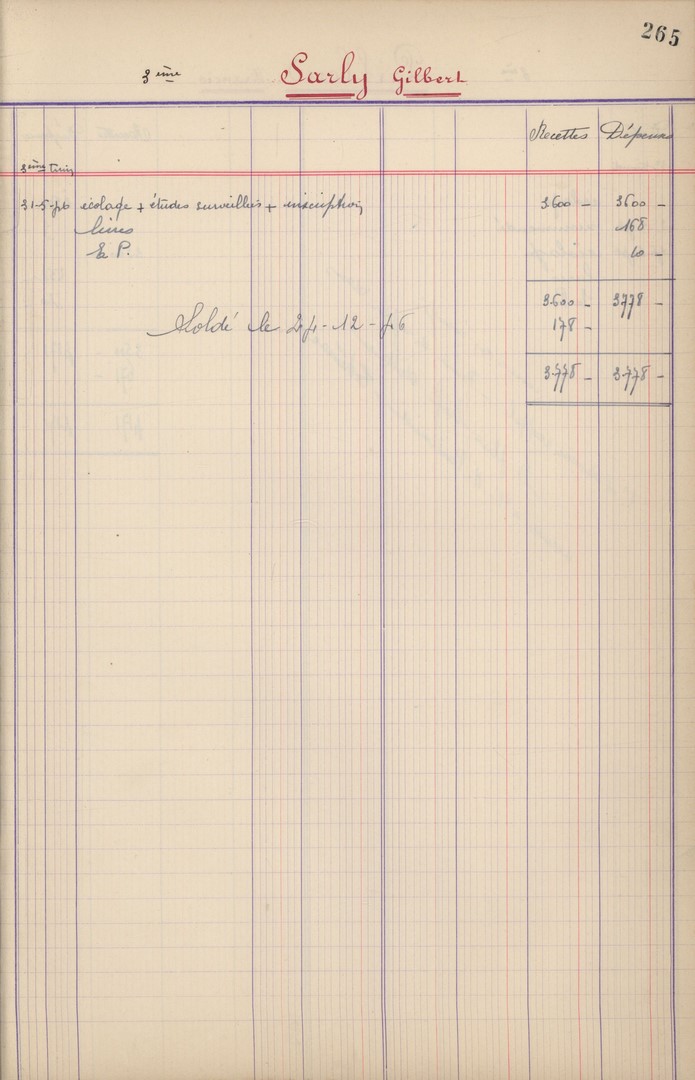 265
3ème Sarly Gilbert
Recettes Dépenses
3ème Trim
31-5-46 écolage + études surveillées + inscription 3.600 - 3600 -
livres 168
E.P. 10 -
3.600 - 3778 -
Soldé le 24-12-46 178 -
3.778 - 3.778 -